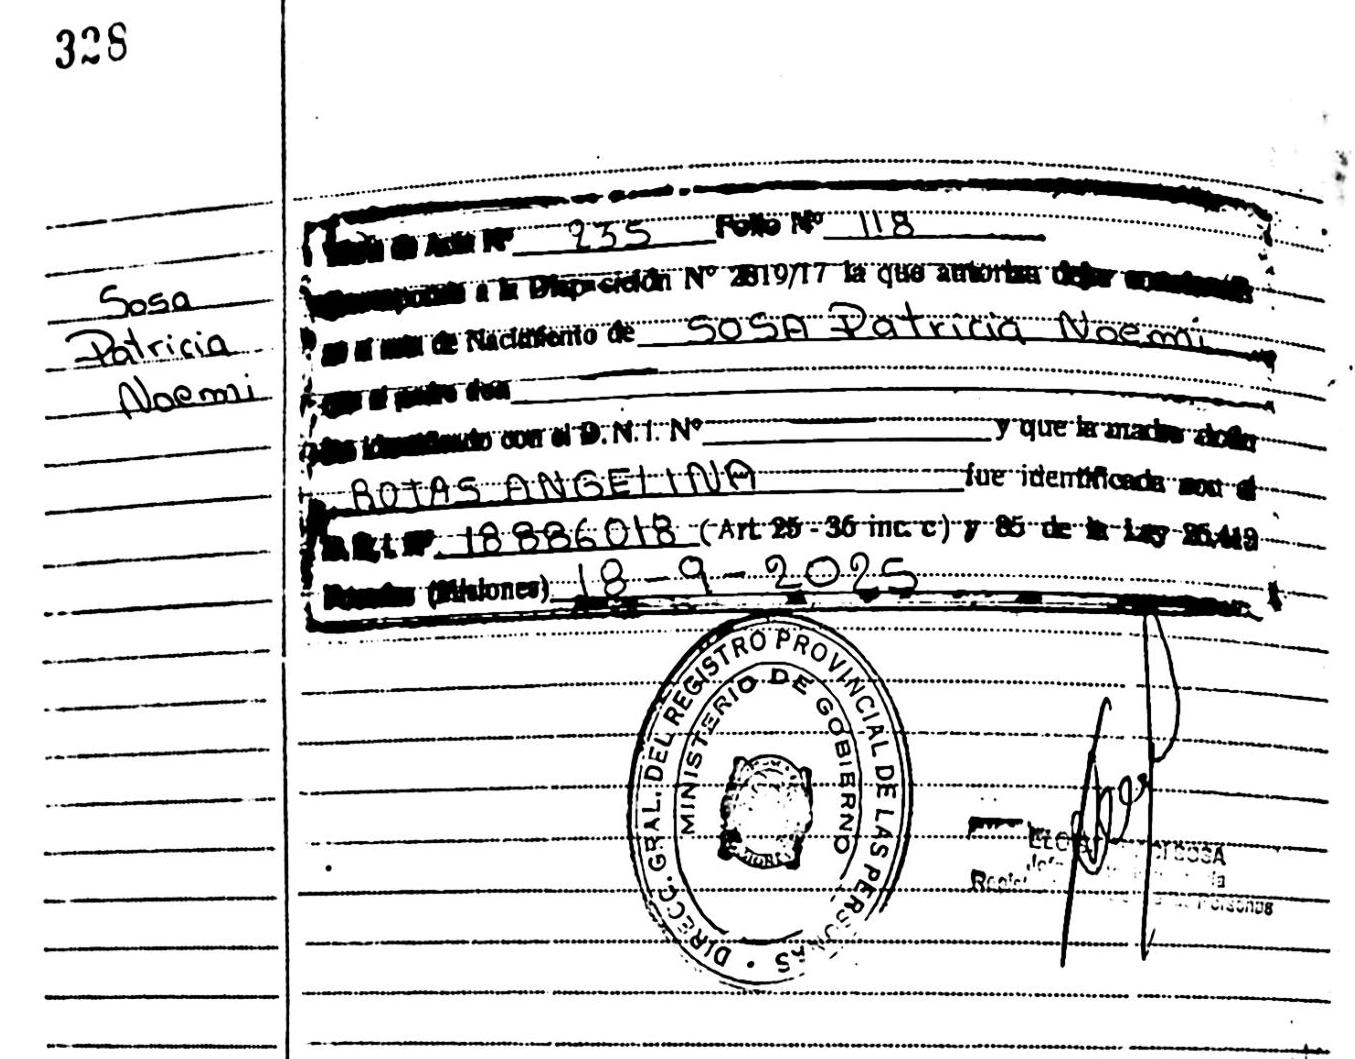 328
Sosa
Patricia
Noemi
de Acta Nº 235 Folio Nº 118
a la Disposición Nº 2819/17 la que autoriza dejar
de Nacimiento de SOSA Patricia Noemi
padre don
identificado con el D.N.I. Nº y que la madre doña
ROJAS ANGELINA fue identificada con el
D.N.I. Nº 18886018 (Art. 25 - 36 inc. c) y 85 de la Ley 26.413
Posadas (Misiones) 18-9-2025
DIRECC. GRAL. DEL REGISTRO PROVINCIAL DE LAS PERSONAS
MINISTERIO DE GOBIERNO
SOSA
Personas